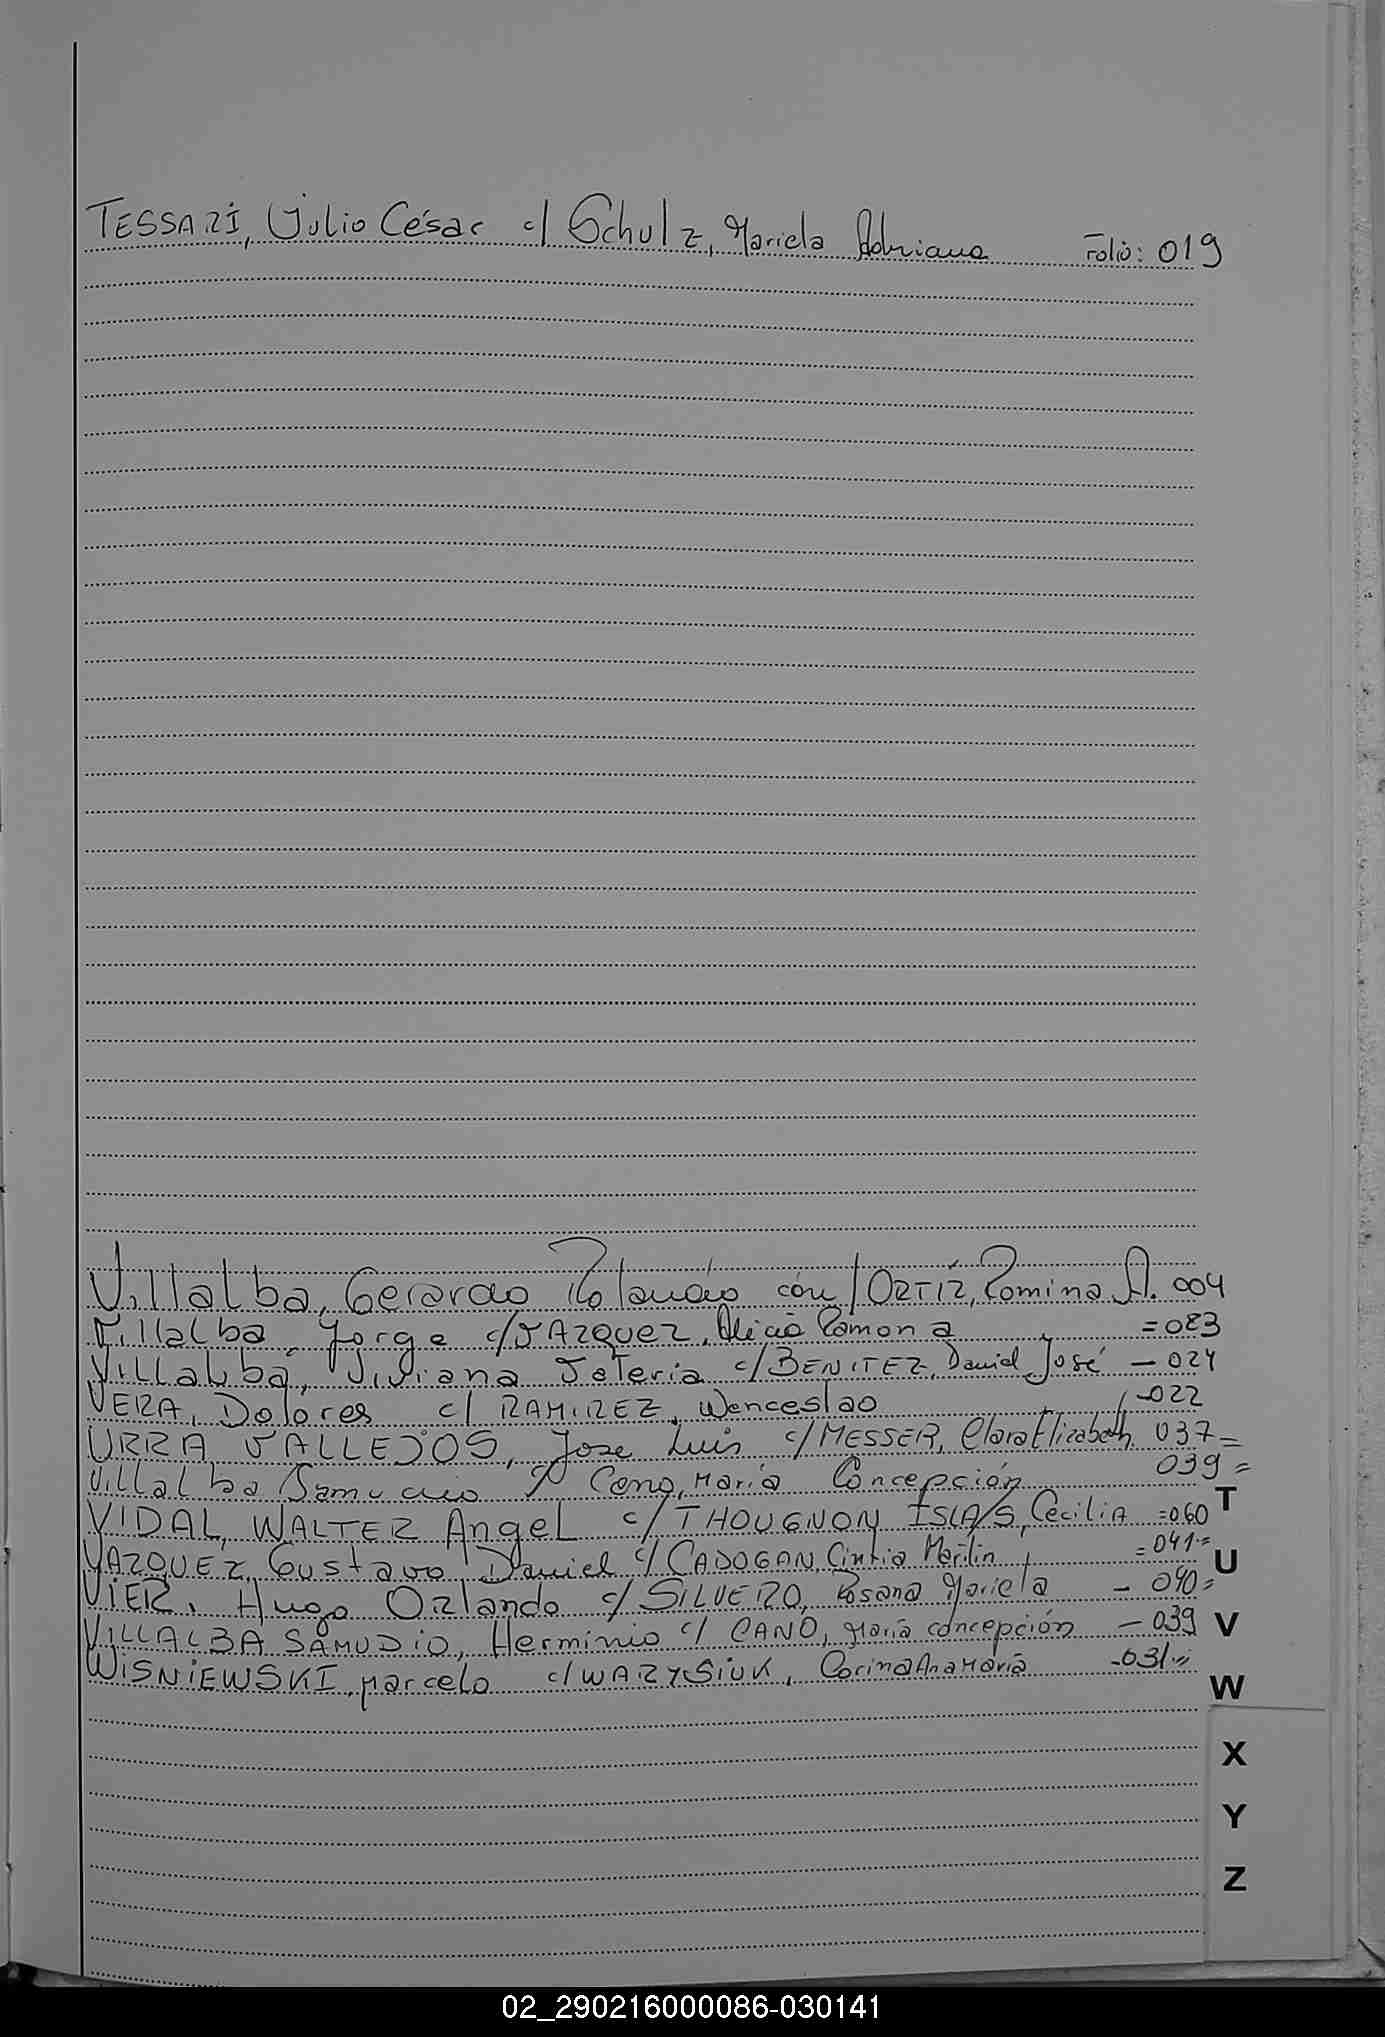 TESSARI, Julio César c/ Schulz, Mariela Adriana Folio: 019
Villalba, Gerardo Rolando con/ORTIZ, Romina A. 004
Villalba Jorge c/VAZQUEZ, Alicia Ramona =023
VILLALBA, Viviana Valeria c/BENITEZ, Daniel José - 024
VERA, Dolores c/ RAMIREZ, Wenceslao -022
URRA VALLEJOS, Jose Luis c/MESSER, Clara Elizabeth 037=
Villalba Samudio c/ Cano, María Concepción 039=
VIDAL, WALTER Angel c/ THOUGNON ISLAS, Cecilia =060
VAZQUEZ, Gustavo Daniel c/ CADOGAN, Cintia Marilin =041=
VIER, Hugo Orlando c/ SILVERO, Rosana Mariela - 040=
VILLALBA SAMUDIO, Herminio c/ CANO, María Concepción - 039
WISNIEWSKI, Marcelo c/WAZYSIUK, Corina Ana María -031=
T
U
V
W
X
Y
Z
02_290216000086-030141